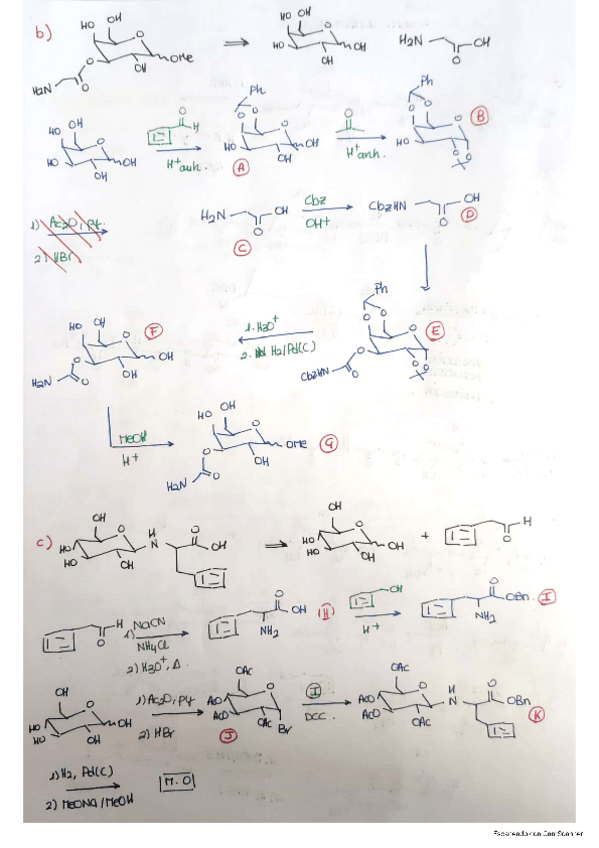 b)
HO OH O OMe OH O O H₂N
⇒
HO OH O HO OH OH
H₂N O OH
HO OH O HO OH OH
O H
H⁺anh.
Ph O O O HO OH OH
A
O
H⁺anh.
Ph O O O HO O O
B
1) Ac₂O, py.
2) HBr
H₂N O OH
C
Cbz
OH+
CbzHN O OH
D
Ph O O O O O O CbzHN O
E
1. H₃O⁺
2. H₂/Pd(C)
HO OH O O OH OH H₂N O
F
MeOH
H+
HO OH O O OMe OH H₂N O
G
c)
OH O HO HO OH H N O OH
⇒
OH O HO HO OH OH
+
O H
O H
1) NaCN
NH₄Cl
2) H₃O⁺, Δ
O OH NH₂
(H)
OH
H+
O OBn. NH₂
I
OH O HO HO OH OH
1) Ac₂O, py
2) HBr
OAc O AcO AcO OAc Br
J
I
DCC.
OAc O AcO AcO OAc H N O OBn
K
1) H₂, Pd(C)
2) MeONa/MeOH
M.O